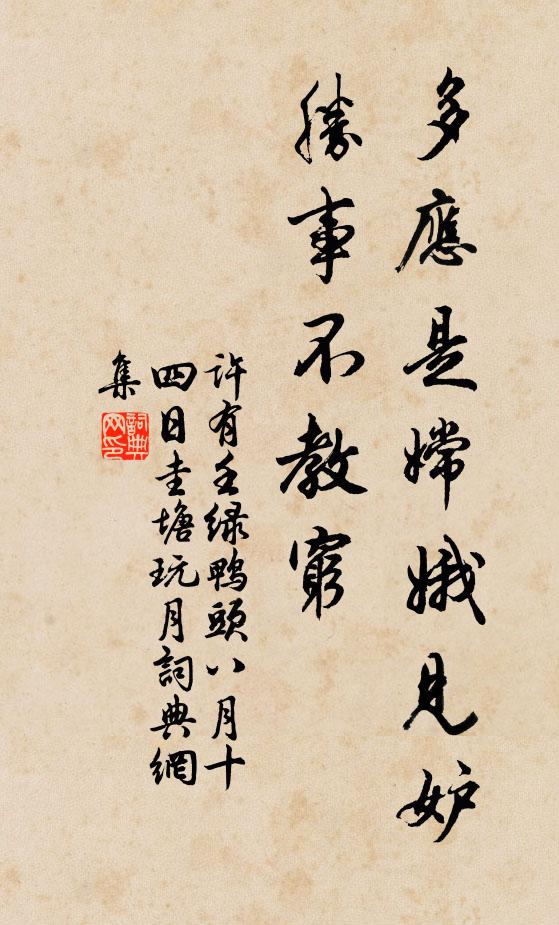 多應是嫦娥見妒
勝事不教窮
許有壬綠鴨頭八月十
四日圭塘玩月詞典網
集
詞典
网印